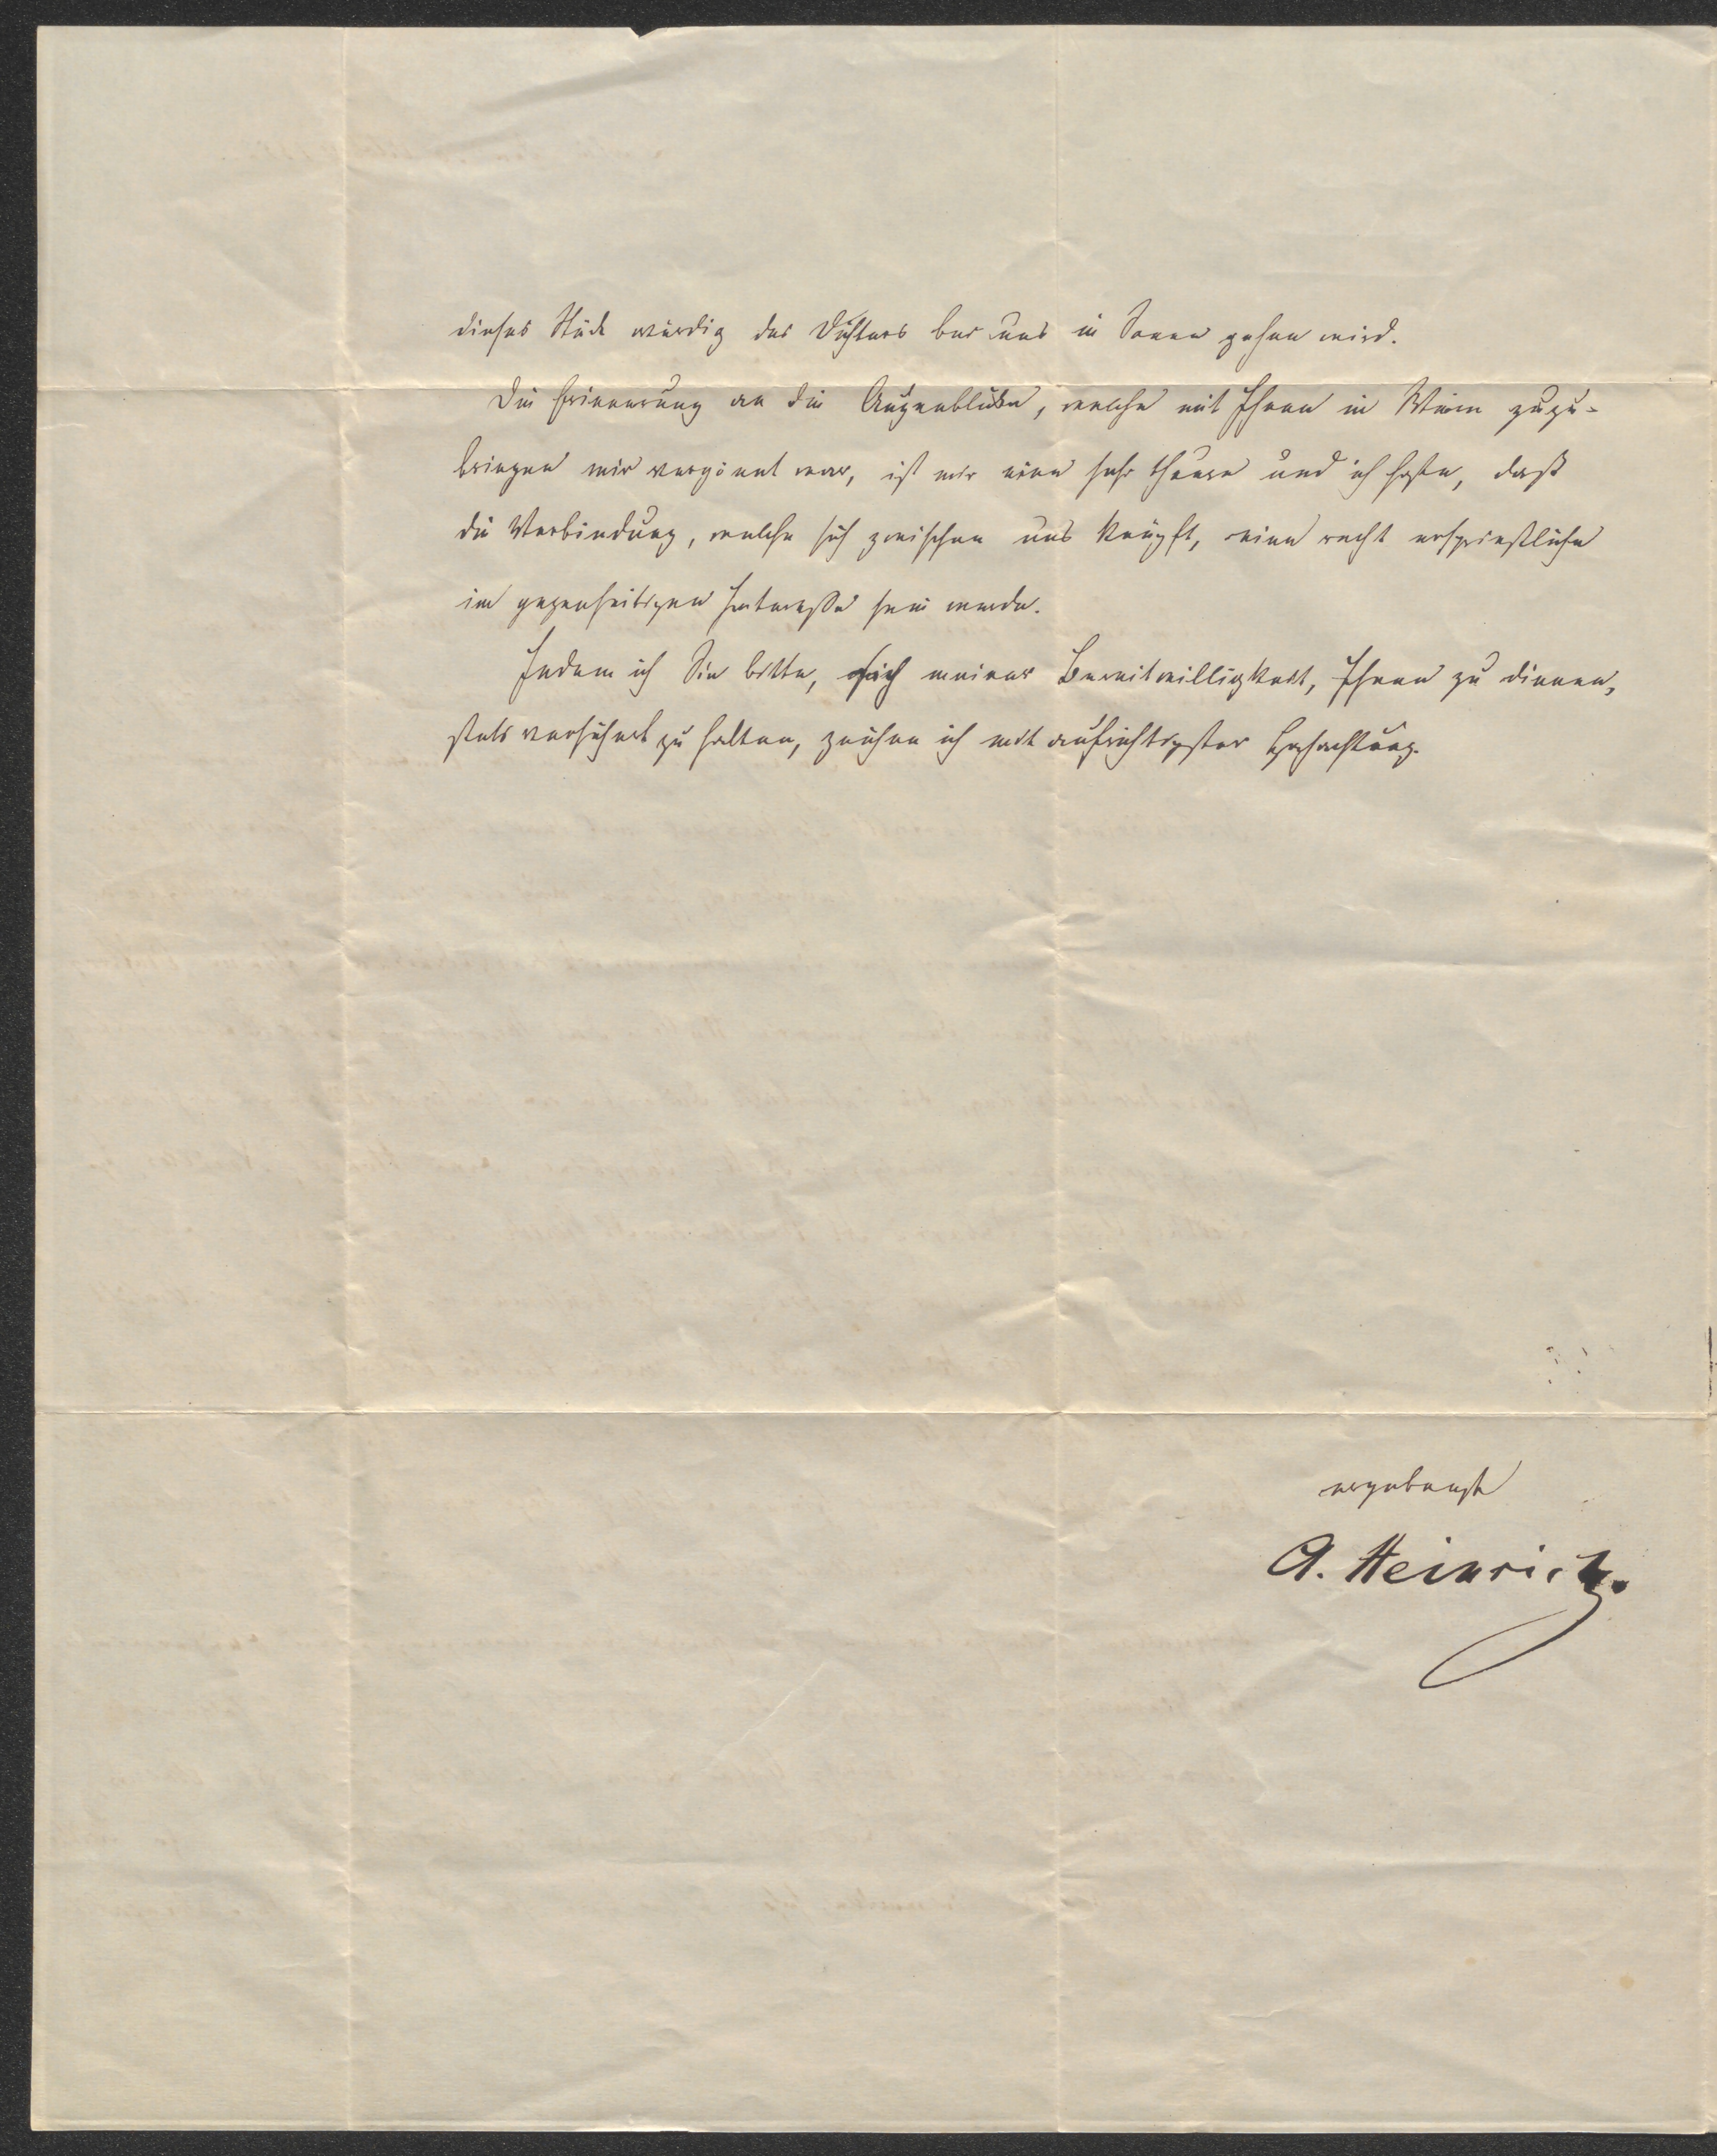 dieses Stück würdig des Dichters bei uns in Scene gehen wird.
Die Erinnerung an die Augenblicke, welche mit Ihnen in Wien zuzu-
bringen mir vergönnt war, ist mir eine sehr theure und ich hoffe, daß
die Verbindung, welche sich zwischen uns knüpft, eine recht ersprießliche
im gegenseitigen Interesse sein werde.
Indem ich Sie bitte, sich meiner Bereitwilligkeit, Ihnen zu dienen,
stets versichert zu halten, zeichne ich mit aufrichtigster Hochachtung.
ergebenst
A. Heinrich.